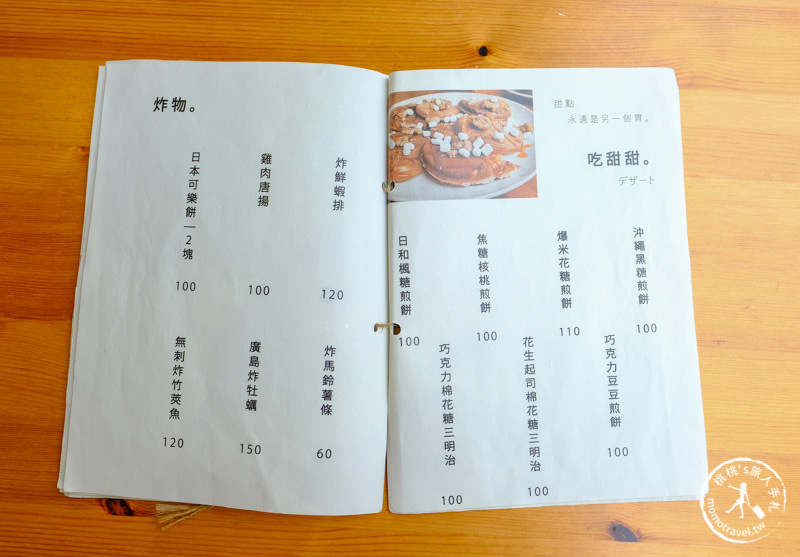 炸物。
炸鮮蝦排
120
雞肉唐揚
100
日本可樂餅—2塊
100
炸馬鈴薯條
60
廣島炸牡蠣
150
無刺炸竹莢魚
120
甜點
永遠是另一個胃。
吃甜甜。
デザート
沖繩黑糖煎餅
100
爆米花糖煎餅
110
焦糖核桃煎餅
100
日和楓糖煎餅
100
巧克力豆豆煎餅
100
花生起司棉花糖三明治
100
巧克力棉花糖三明治
100
桃桃's旅人手札
momotravel.tw